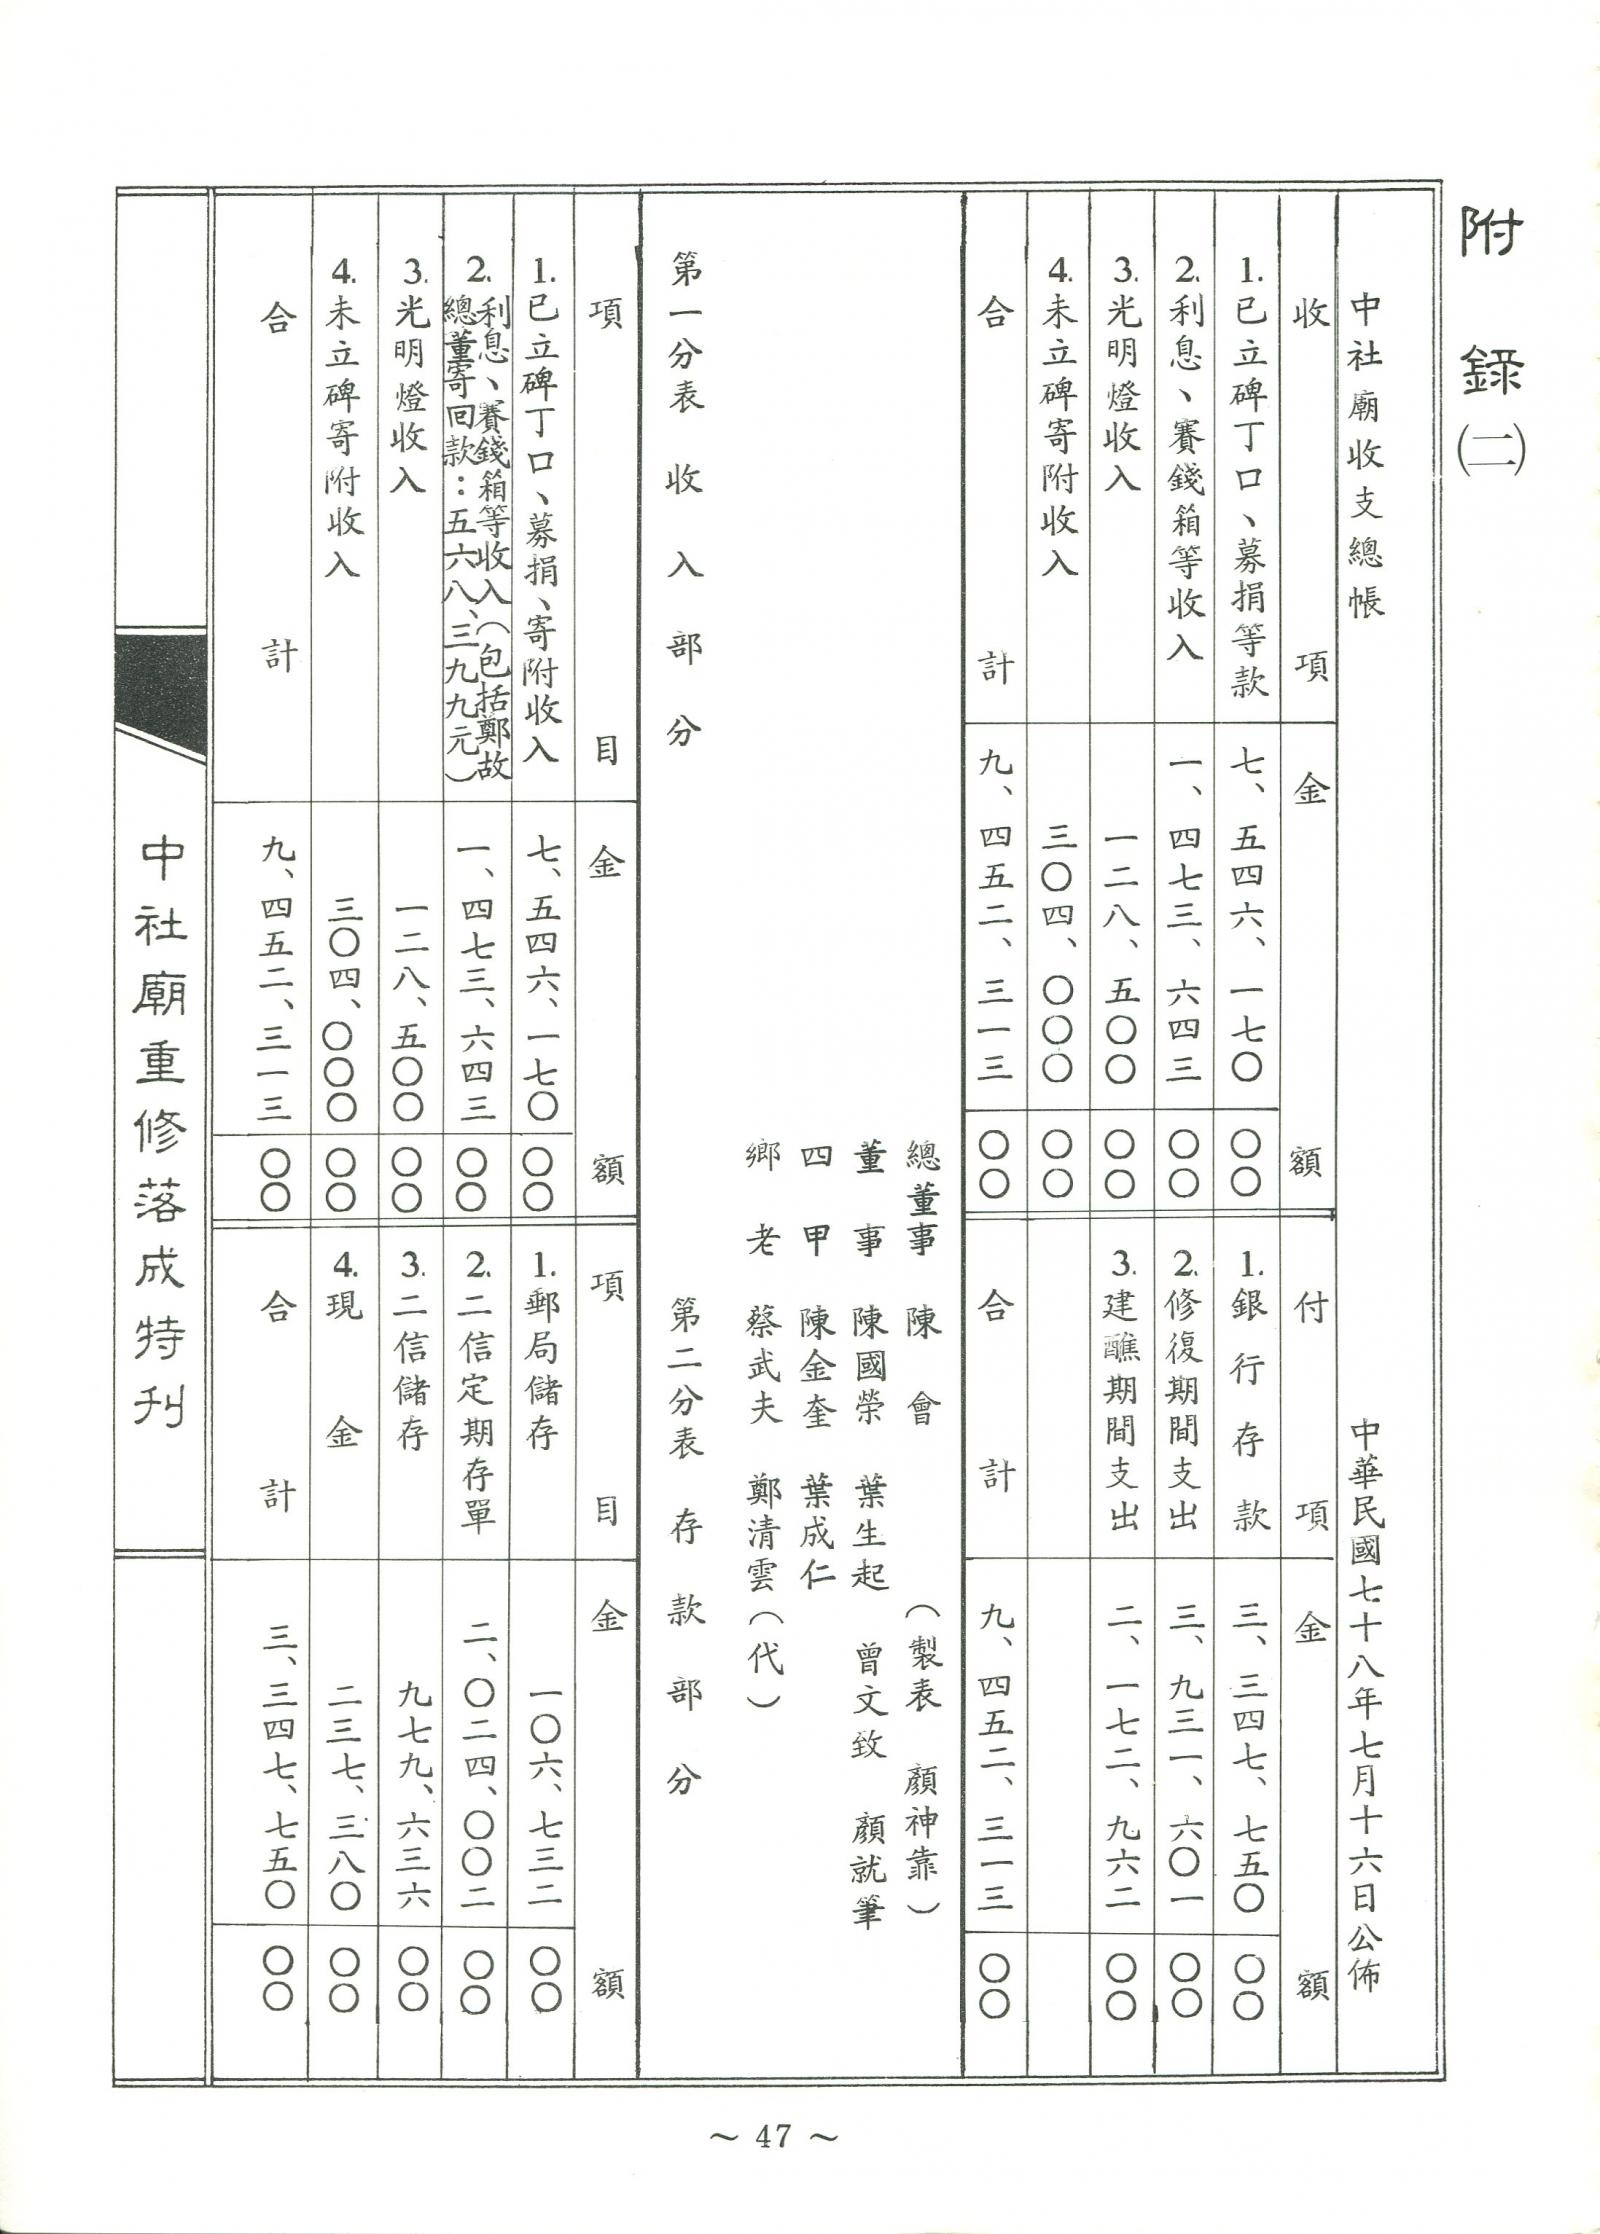 附錄㈡
中社廟收支總帳　中華民國七十八年七月十六日公佈
收項　金額　付項　金額
1.已立碑丁口、募捐等款　七、五四六、一七〇　〇〇　1.銀行存款　三、三四七、七五〇　〇〇
2.利息、賽錢箱等收入　一、四七三、六四三　〇〇　2.修復期間支出　三、九三一、六〇一　〇〇
3.光明燈收入　一二八、五〇〇　〇〇　3.建醮期間支出　二、一七二、九六二　〇〇
4.未立碑寄附收入　三〇四、〇〇〇　〇〇
合計　九、四五二、三一三　〇〇　合計　九、四五二、三一三　〇〇
總董事　陳會　（製表　顏神靠）
董事　陳國榮　葉生起　曾文致　顏就筆
四甲　陳金奎　葉成仁
鄉老　蔡武夫　鄭清雲（代）
第一分表　收入部分　第二分表　存款部分
項目　金額　項目　金額
1.已立碑丁口、募捐、寄附收入　七、五四六、一七〇　〇〇　1.郵局儲存　一〇六、七三二　〇〇
2.利息、賽錢箱等收入（包括鄭故
總董寄回款：五六八、三九九元）　一、四七三、六四三　〇〇　2.二信定期存單　二、〇二四、〇〇二　〇〇
3.光明燈收入　一二八、五〇〇　〇〇　3.二信儲存　九七九、六三六　〇〇
4.未立碑寄附收入　三〇四、〇〇〇　〇〇　4.現金　二三七、三八〇　〇〇
合計　九、四五二、三一三　〇〇　合計　三、三四七、七五〇　〇〇
中社廟重修落成特刊
～47～